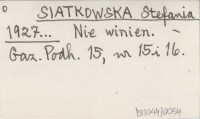 SIATKOWSKA Stefania
1927... Nie winien. –
Gaz. Podh. 15, nr 15 i 16.